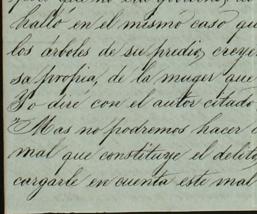 hallo en el mismo caso que
los árboles de su predio, creye
sa propia, de la muger que
Yo diré con el autor citado
"Mas no podremos hacer
mal que constituye el delito,
cargarle en cuenta este mal